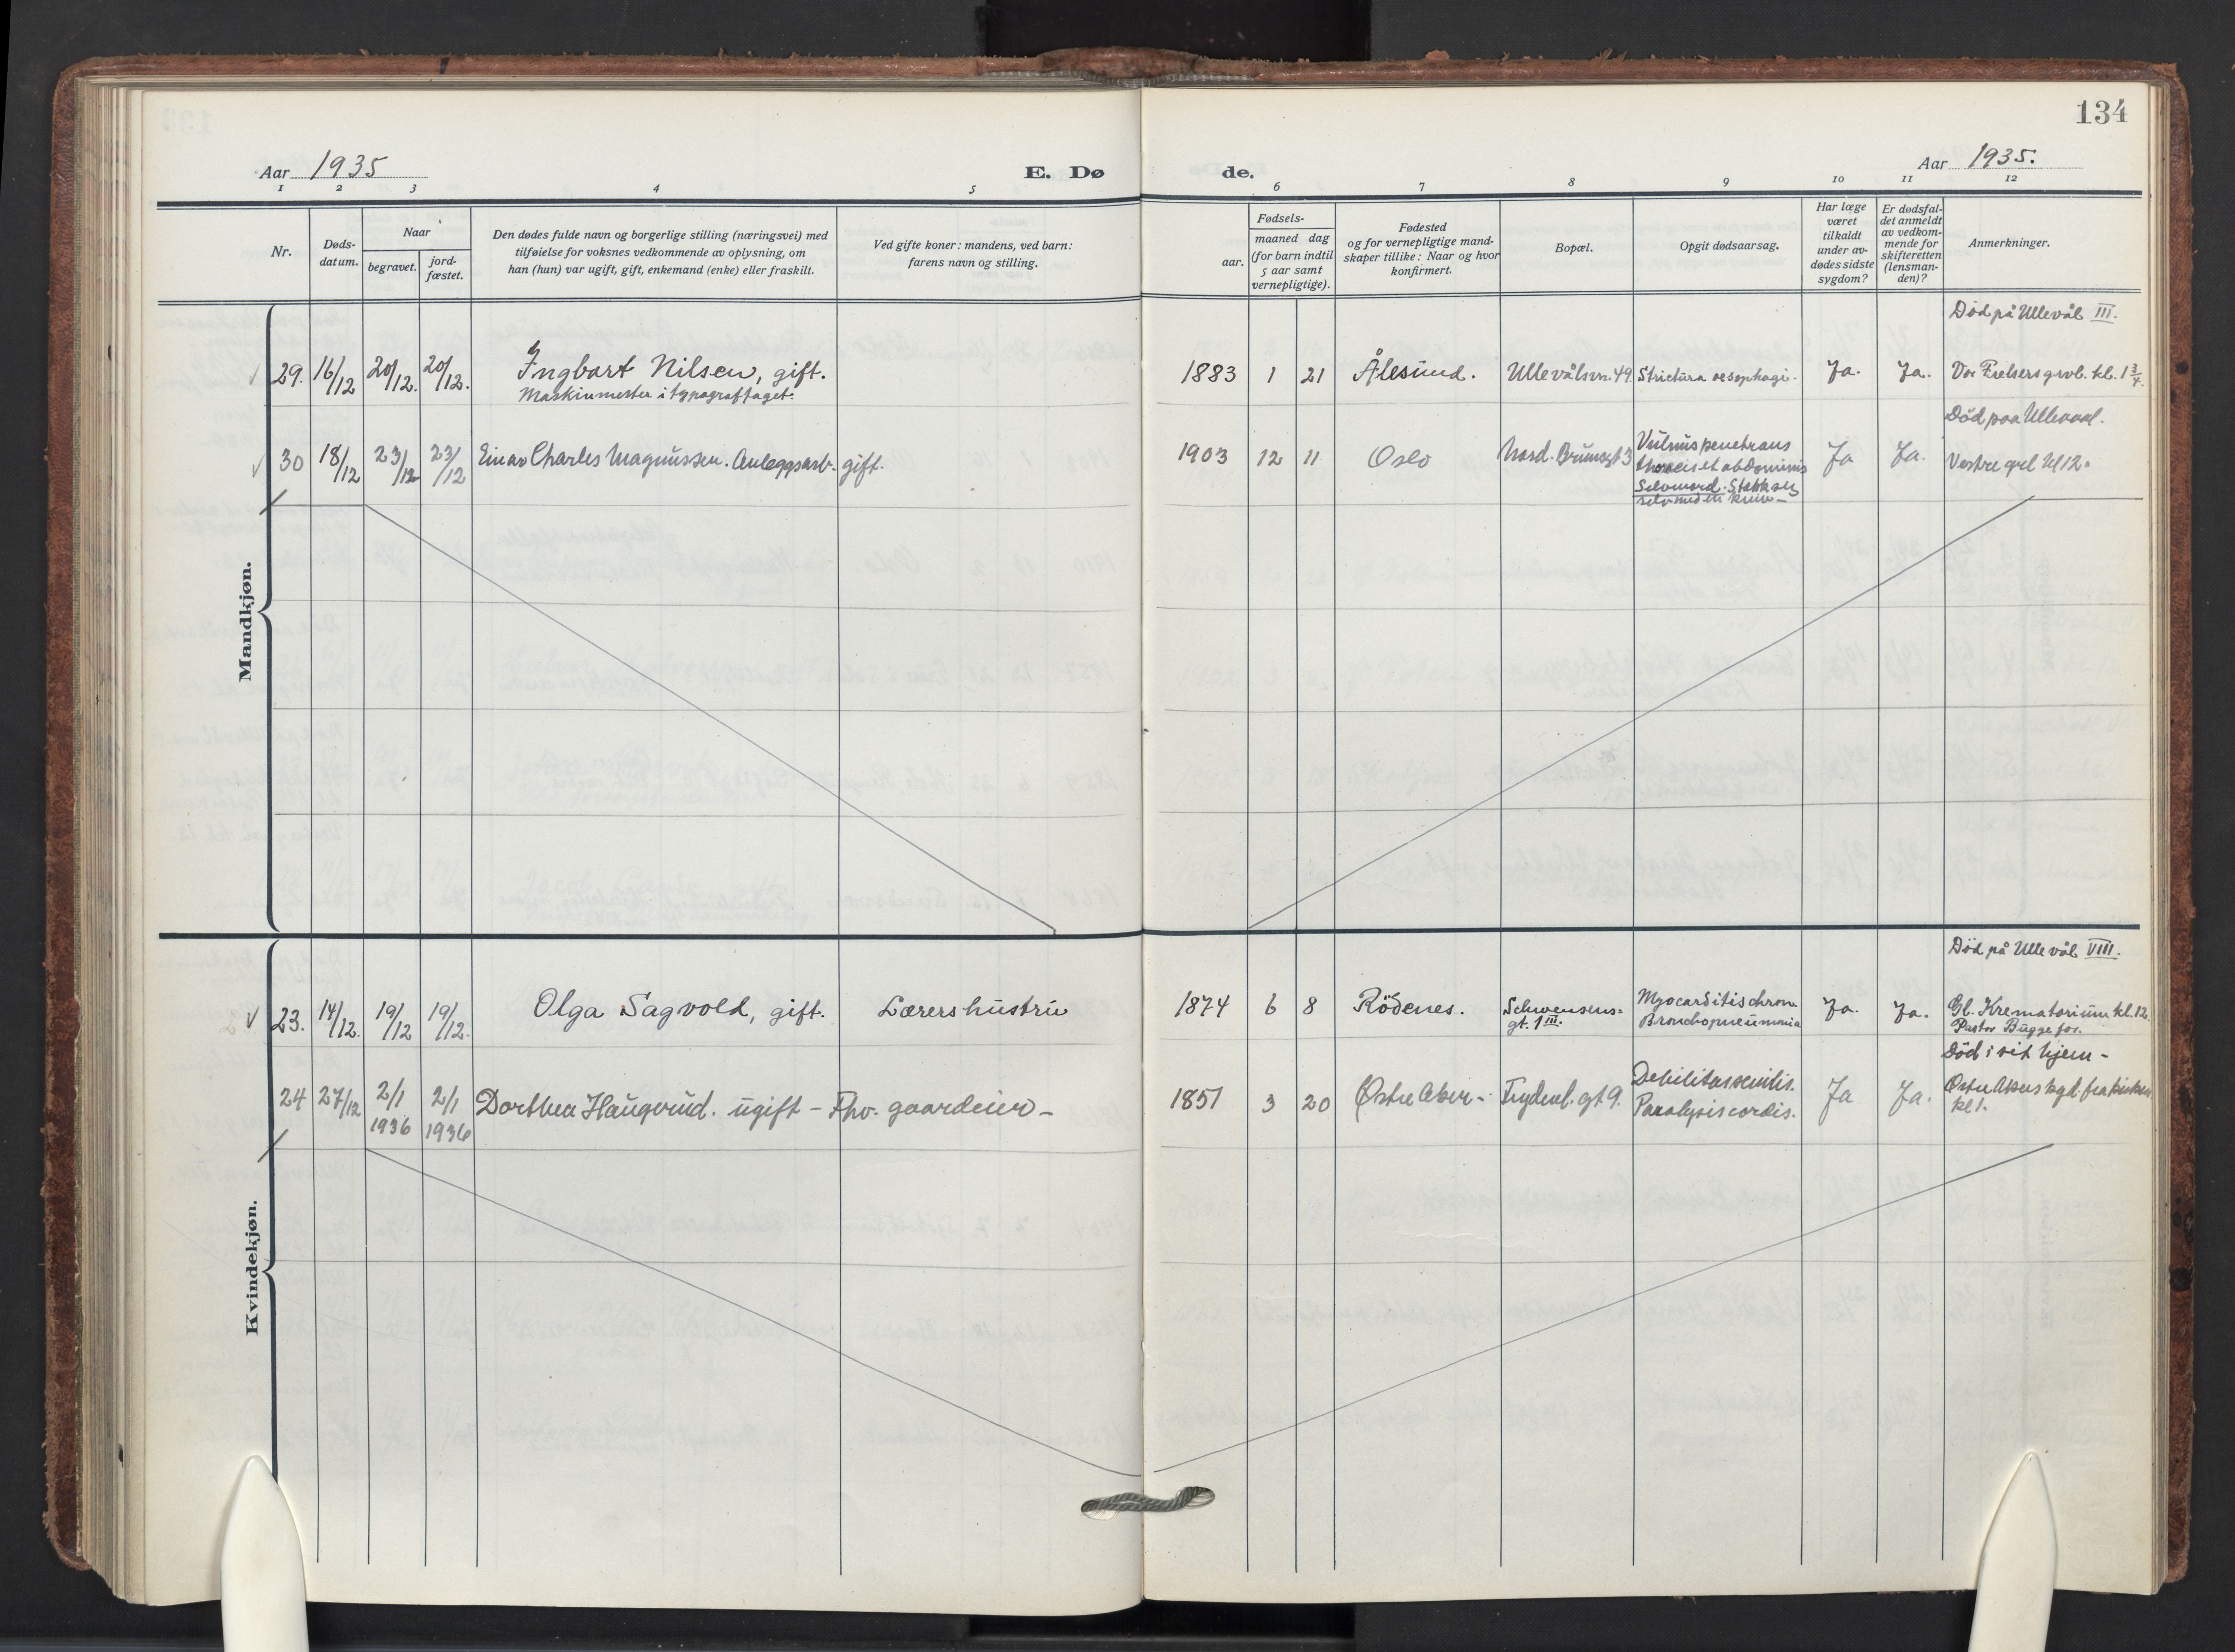 134
Aar 1935
E. Dø
de.
Aar 1935.
1 2 3 4 5 6 7 8 9 10 11 12
Nr.
Døds-
datum.
Naar
begravet.
jord-
fæstet.
Den dødes fulde navn og borgerlige stilling (næringsvei) med
tilføielse for voksnes vedkommende av oplysning, om
han (hun) var ugift, gift, enkemand (enke) eller fraskilt.
Ved gifte koner: mandens, ved barn:
farens navn og stilling.
Fødsels-
aar.
maaned dag
(for barn indtil
5 aar samt
vernepligtige).
Fødested
og for vernepligtige mand-
skaper tillike: Naar og hvor
konfirmert.
Bopæl.
Opgit dødsaarsag.
Har læge
været
tilkaldt
under av-
dødes sidste
sygdom?
Er dødsfal-
det anmeldt
av vedkom-
mende for
skifteretten
(lensman-
den)?
Anmerkninger.
Mandkjøn.
Død på Ullevål III.
29. 16/12 20/12. 20/12. Ingbart Nilsen, gift. 1883 1 21 Ålesund. Ullevålsvn. 49. Strictura oesophagi. Ja. Ja. Vor Frelsers grvl. kl. 1 3/4.
Maskinmester i typograflaget.
Død paa Ullevaal.
30 18/12 23/12 23/12 Einar Charles Magnussen. Anleggsarb. gift. 1903 12 11 Oslo Nord. Brunsgt 3 Vulnus penetrans Ja Ja. Vestre grl kl 12.
thoracis et abdominis
Selvmord. Stakk seg
selv med en kniv -
Kvindekjøn.
Død på Ullevål VIII.
23. 14/12. 19/12 19/12. Olga Sagvold, gift. Lærers hustru 1874 6 8 Rödenes. Schwensens= Myocarditis chron. Ja. Ja. Gl. Krematorium kl. 12.
gt. 1 III. Bronchopneumonia Pastor Bugge for.
Död i sit hjem -
24 27/12 2/1 2/1 Dorthea Haugerud. ugift - Fhv. gaardeier - 1851 3 20 Østre Aker - Frydenl. gt 9. Debilitas senilis. Ja Ja. Østre Akers kgd. fra kirken
1936 1936 Paralysis cordis. kl 1.